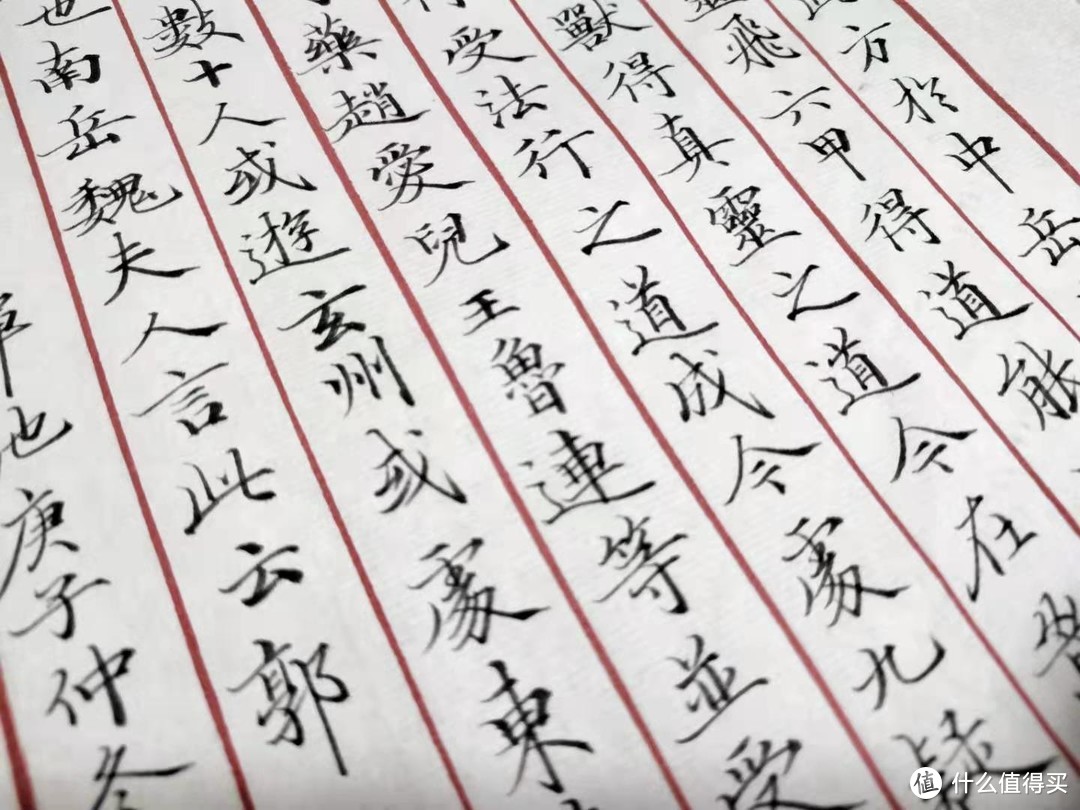 方於中岳
飛六甲得道能
獸得真靈之道今在
受法行之道成今處九疑
藥趙愛兒王魯連等並受
數十人或遊玄州或處東
也南岳魏夫人言此云郭
也庚子仲冬
值 什么值得买